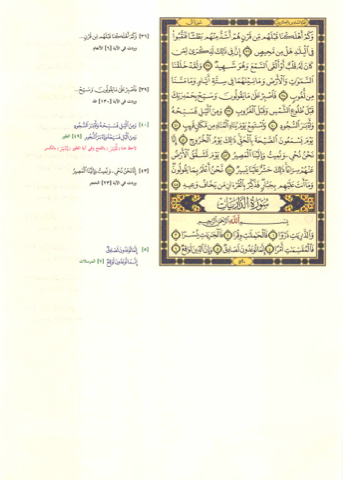 وَكَمْ أَهْلَكْنَا قَبْلَهُم مِّن قَرْنٍ هُمْ أَشَدُّ مِنْهُم بَطْشًا فَنَقَّبُوا۟
فِى ٱلْبِلَٰدِ هَلْ مِن مَّحِيصٍ ٣٦ إِنَّ فِى ذَٰلِكَ لَذِكْرَىٰ لِمَن
كَانَ لَهُۥ قَلْبٌ أَوْ أَلْقَى ٱلسَّمْعَ وَهُوَ شَهِيدٌ ٣٧ وَلَقَدْ خَلَقْنَا
ٱلسَّمَٰوَٰتِ وَٱلْأَرْضَ وَمَا بَيْنَهُمَا فِى سِتَّةِ أَيَّامٍ وَمَا مَسَّنَا
مِن لُّغُوبٍ ٣٨ فَٱصْبِرْ عَلَىٰ مَا يَقُولُونَ وَسَبِّحْ بِحَمْدِ رَبِّكَ
قَبْلَ طُلُوعِ ٱلشَّمْسِ وَقَبْلَ ٱلْغُرُوبِ ٣٩ وَمِنَ ٱلَّيْلِ فَسَبِّحْهُ
وَأَدْبَٰرَ ٱلسُّجُودِ ٤٠ وَٱسْتَمِعْ يَوْمَ يُنَادِ ٱلْمُنَادِ مِن مَّكَانٍ قَرِيبٍ ٤١
يَوْمَ يَسْمَعُونَ ٱلصَّيْحَةَ بِٱلْحَقِّ ذَٰلِكَ يَوْمُ ٱلْخُرُوجِ ٤٢ إِنَّا
نَحْنُ نُحْىِۦ وَنُمِيتُ وَإِلَيْنَا ٱلْمَصِيرُ ٤٣ يَوْمَ تَشَقَّقُ ٱلْأَرْضُ
عَنْهُمْ سِرَاعًا ذَٰلِكَ حَشْرٌ عَلَيْنَا يَسِيرٌ ٤٤ نَّحْنُ أَعْلَمُ بِمَا يَقُولُونَ
وَمَآ أَنتَ عَلَيْهِم بِجَبَّارٍ فَذَكِّرْ بِٱلْقُرْءَانِ مَن يَخَافُ وَعِيدِ ٤٥
سُورَةُ الذَّارِيَاتِ
بِسْمِ ٱللَّهِ ٱلرَّحْمَٰنِ ٱلرَّحِيمِ
وَٱلذَّٰرِيَٰتِ ذَرْوًا ١ فَٱلْحَٰمِلَٰتِ وِقْرًا ٢ فَٱلْجَٰرِيَٰتِ يُسْرًا ٣
فَٱلْمُقَسِّمَٰتِ أَمْرًا ٤ إِنَّمَا تُوعَدُونَ لَصَادِقٌ ٥ وَإِنَّ ٱلدِّينَ لَوَٰقِعٌ ٦
٥٢٠
[٣٦] وَكَمْ أَهْلَكْنَا قَبْلَهُم مِّن قَرْنٍ...
وردت في الآية [٦] الأنعام
[٣٩] فَٱصْبِرْ عَلَىٰ مَا يَقُولُونَ وَسَبِّحْ...
وردت في الآية [١٣٠] طه
[٤٠] وَمِنَ ٱلَّيْلِ فَسَبِّحْهُ وَأَدْبَٰرَ ٱلسُّجُودِ
وَمِنَ ٱلَّيْلِ فَسَبِّحْهُ وَإِدْبَٰرَ ٱلنُّجُومِ [٤٩] الطور
[٤٣] إِنَّا نَحْنُ نُحْىِۦ وَنُمِيتُ وَإِلَيْنَا ٱلْمَصِيرُ
وردت في الآية [٢٣] الحجر
[٥] إِنَّمَا تُوعَدُونَ لَصَادِقٌ
إِنَّمَا تُوعَدُونَ لَوَٰقِعٌ [٧] المرسلات